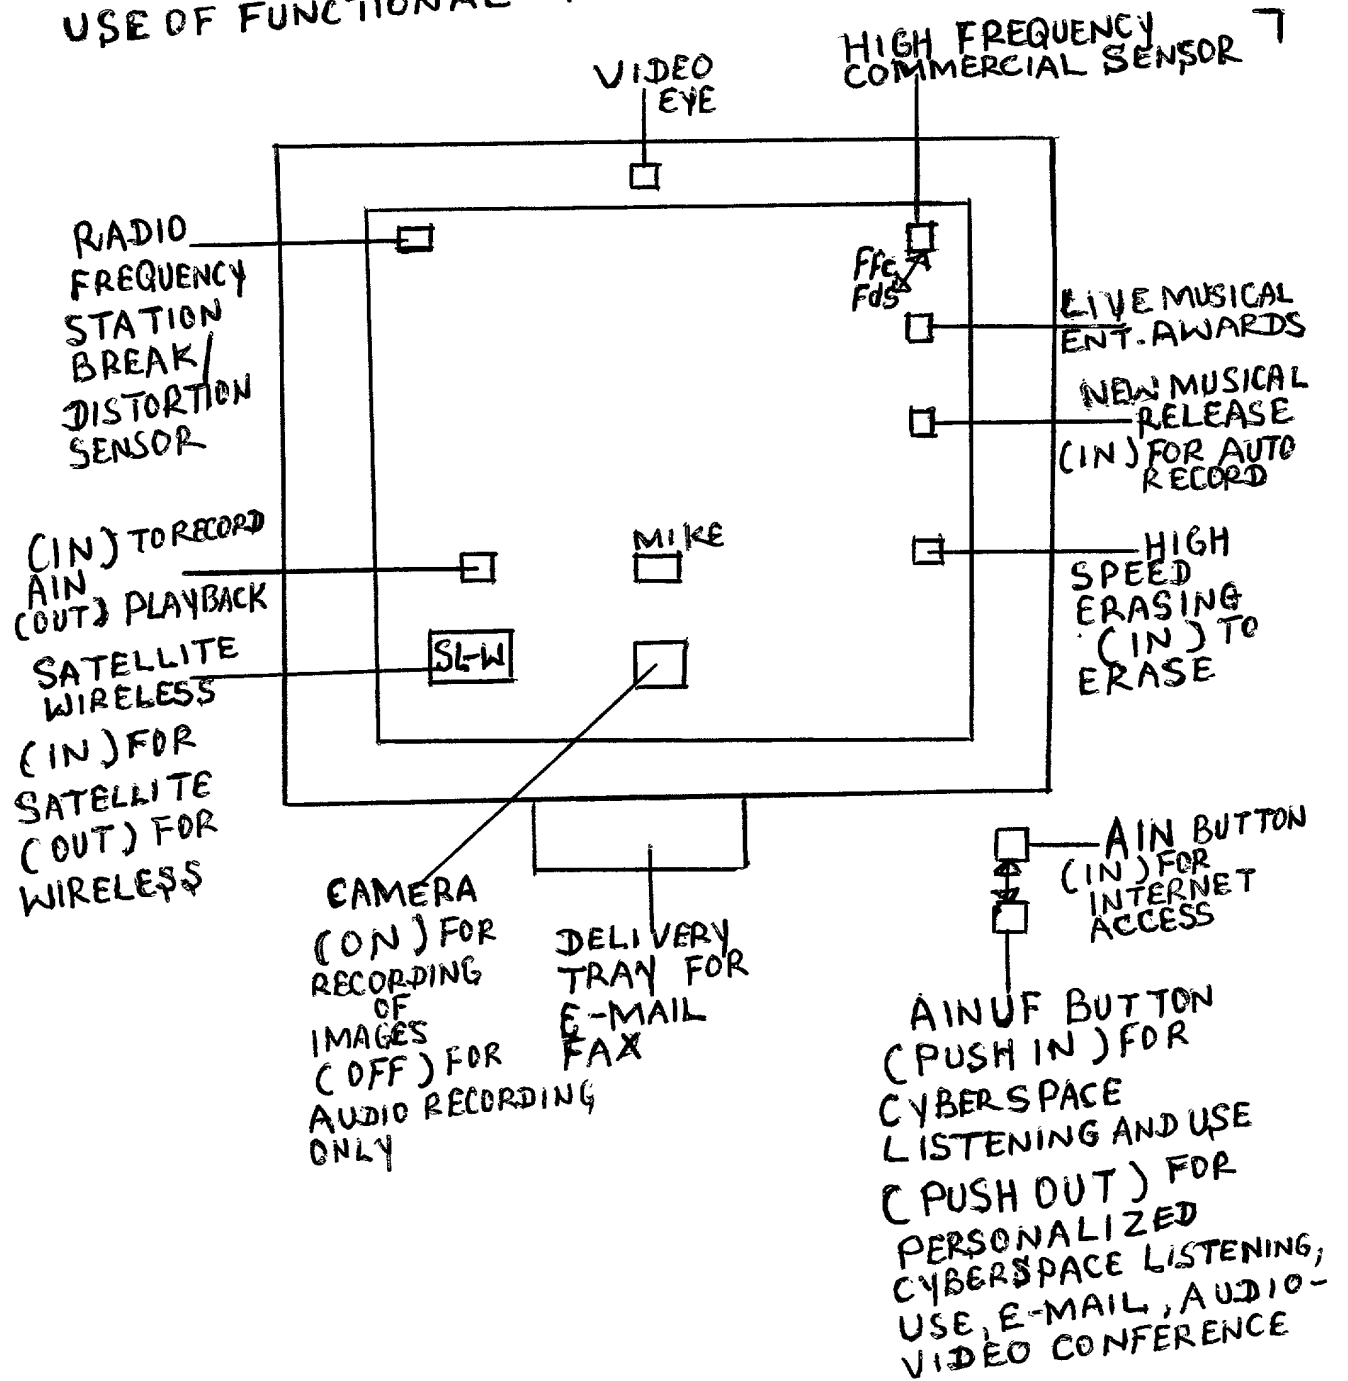 USE OF FUNCTIONAL
VIDEO
EYE
HIGH FREQUENCY
COMMERCIAL SENSOR
RADIO
FREQUENCY
STATION
BREAK/
DISTORTION
SENSOR
Ffc
Fds
LIVE MUSICAL
ENT. AWARDS
NEW MUSICAL
RELEASE
(IN) FOR AUTO
RECORD
(IN) TO RECORD
AIN
(OUT) PLAYBACK
MIKE
HIGH
SPEED
ERASING
(IN) TO
ERASE
SATELLITE
WIRELESS
(IN) FOR
SATELLITE
(OUT) FOR
WIRELESS
SL-W
CAMERA
(ON) FOR
RECORDING
OF
IMAGES
(OFF) FOR
AUDIO RECORDING
ONLY
DELIVERY
TRAY FOR
E-MAIL
FAX
AIN BUTTON
(IN) FOR
INTERNET
ACCESS
AINUF BUTTON
(PUSH IN) FOR
CYBERSPACE
LISTENING AND USE
(PUSH OUT) FOR
PERSONALIZED
CYBERSPACE LISTENING,
USE, E-MAIL, AUDIO-
VIDEO CONFERENCE